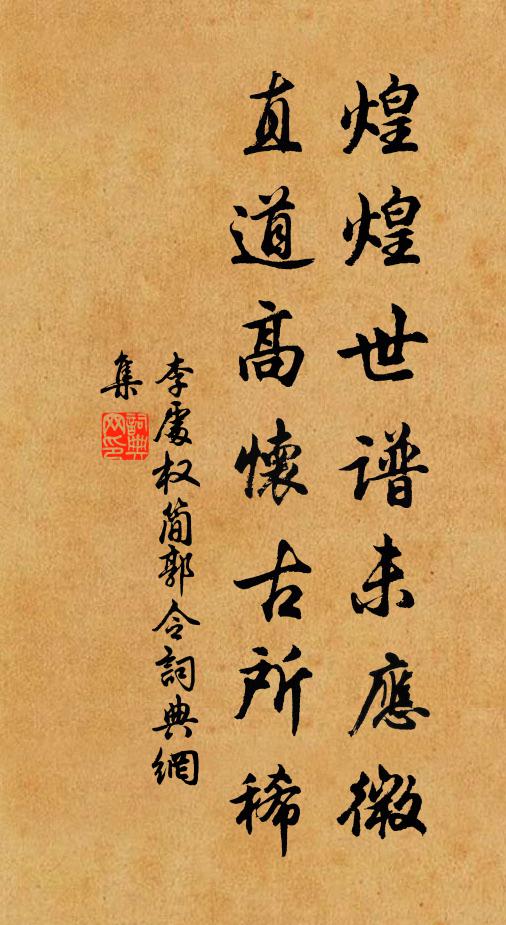 煌煌世谱未應微
直道高懷古所稀
李處权简郭令詞典網
集
詞典网印